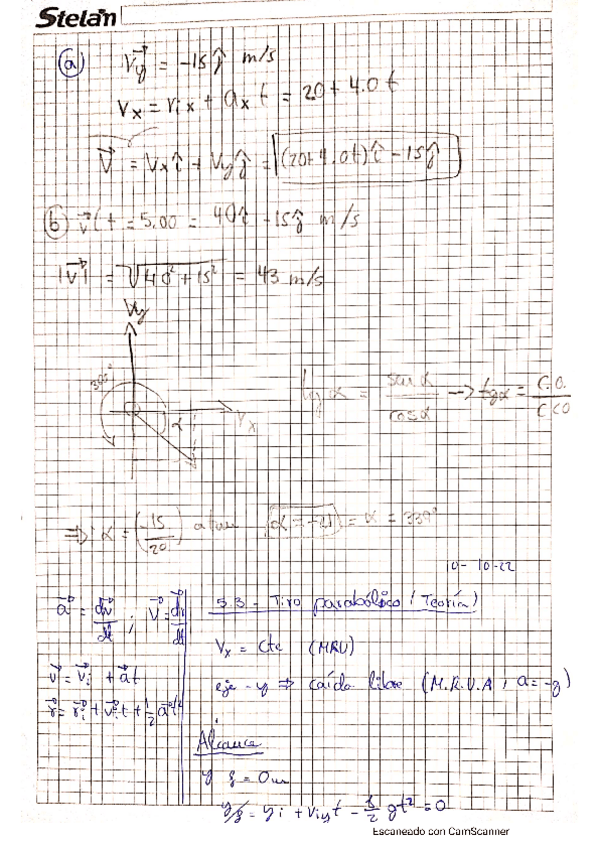 Stelan
(a) V⃗y = -15ĵ m/s
Vx = Vix + ax t = 20 + 4.0 t
V⃗ = Vx î + Vy ĵ = (20+4.0t) î - 15ĵ
(b) v⃗(t = 5.00 = 40î - 15ĵ m/s
|v⃗| = √40² + 15² = 43 m/s
Vy
α Vx
tg α = sen α / cos α --> tg α = C.O. / CCO
=> α = (-15/20) = α = 339°
10-10-22
a⃗ = dv⃗/dt ; v⃗ = dr⃗/dt
v⃗ = v⃗i + a⃗t
r⃗ = r⃗i + v⃗i t + 1/2 a⃗t²
5.3.- Tiro parabólico (Teoría)
Vx = Cte (MRU)
eje -y => caída libre (M.R.U.A ; a = -g)
Alcance
y f = 0m
yf = yi + Viy t - 1/2 gt² = 0
Escaneado con CamScanner